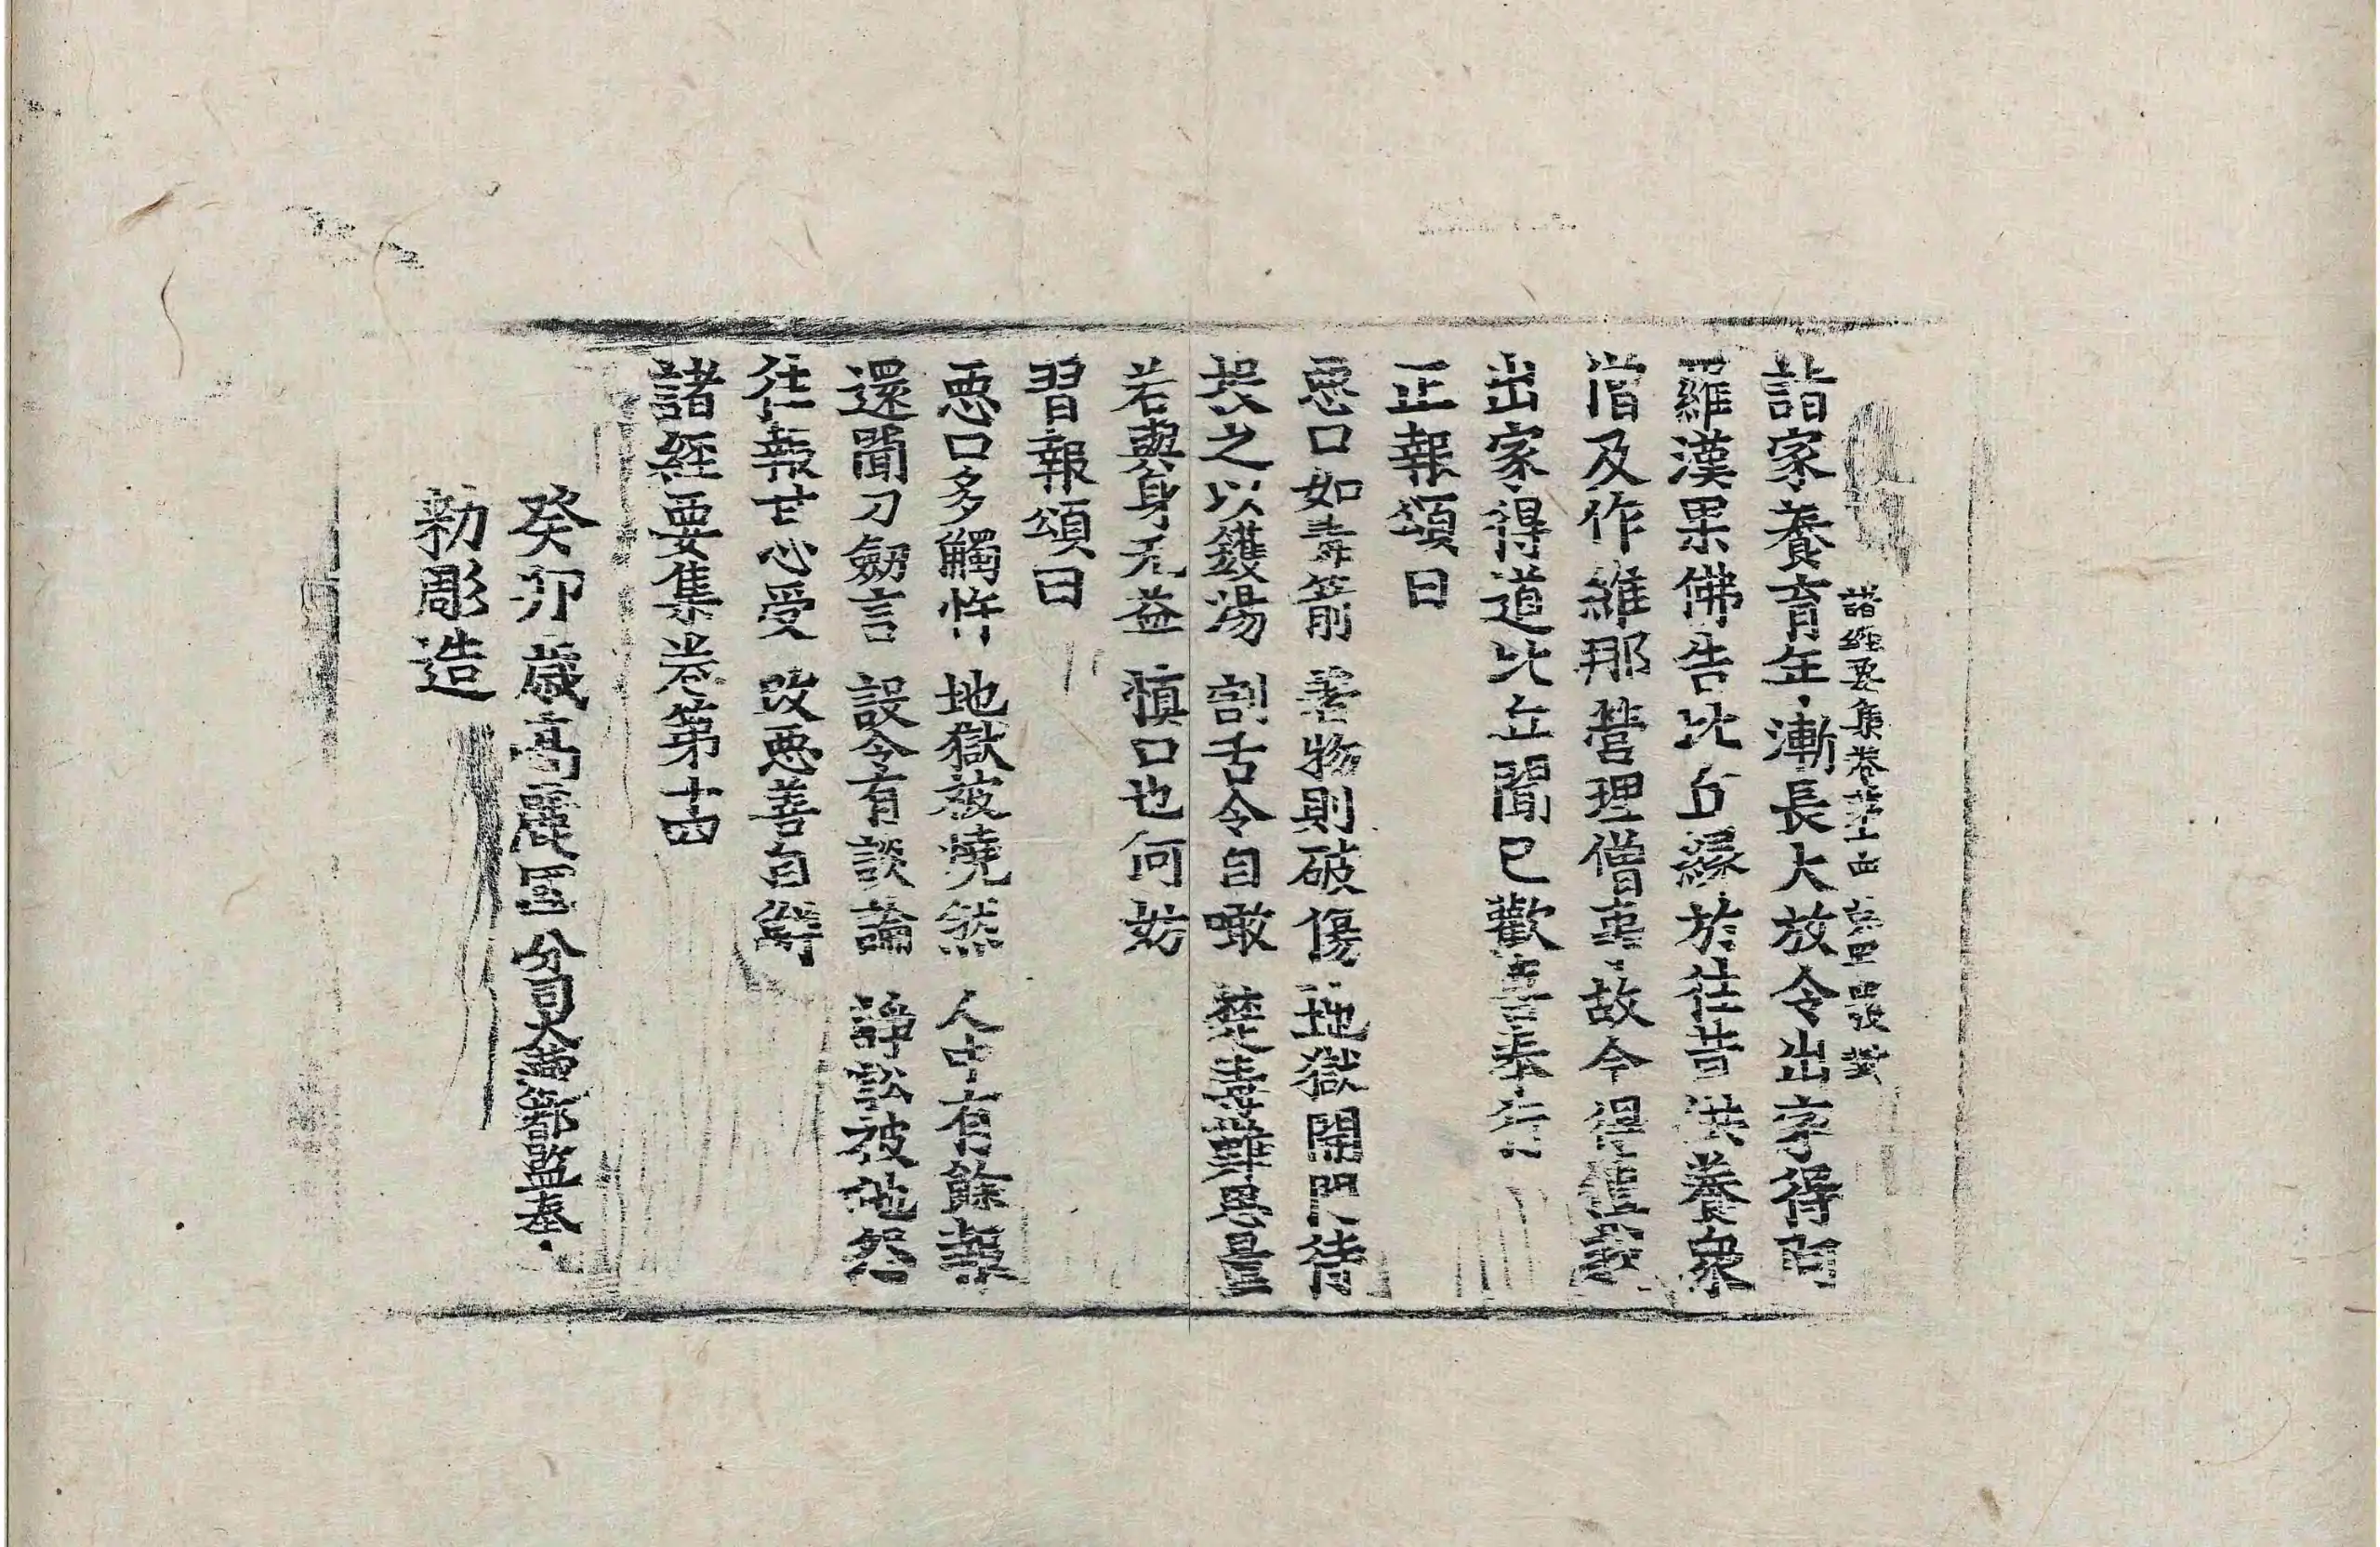 諸經要集卷第十四
詣家養育年漸長大放令出家得阿
羅漢果佛告比丘緣於往昔供養衆
僧及作維那營理僧事故今得值我
出家得道比丘聞已歡喜奉行
正報頌曰
惡口如毒箭 著物則破傷 地獄開門待
投之以鑊湯 割舌令自噉 楚毒難思量
若與身无益 慎口也何妨
習報頌曰
惡口多觸忤 地獄被燒然 人中有餘報
還聞刀劒言 設令有談論 諍訟被他怨
往報甘心受 改惡善自鮮
諸經要集卷第十四
癸卯歲高麗國分司大藏都監奉
勅彫造